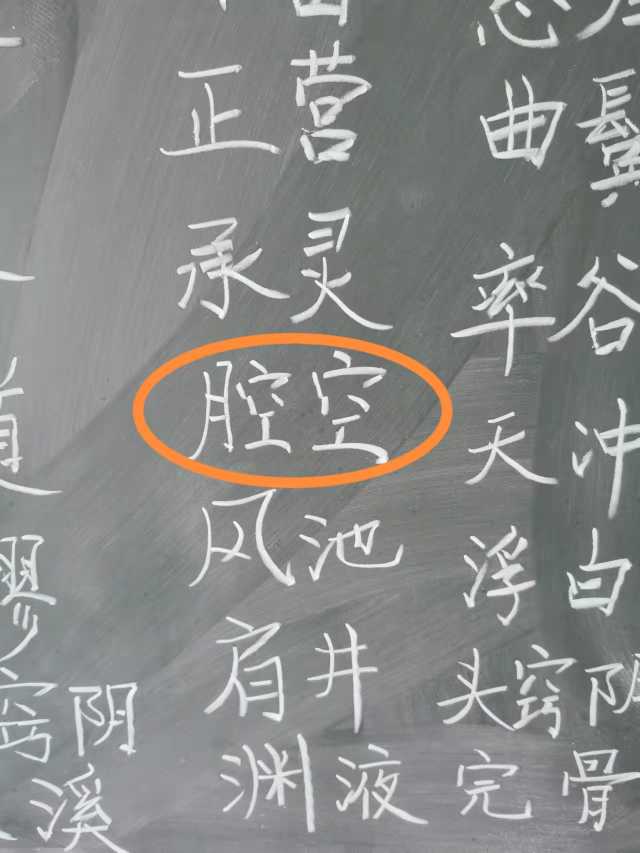 窍阴
溪
正营
承灵
腔空
风池
肩井
渊液
曲鬓
率谷
天冲
浮白
头窍阴
完骨